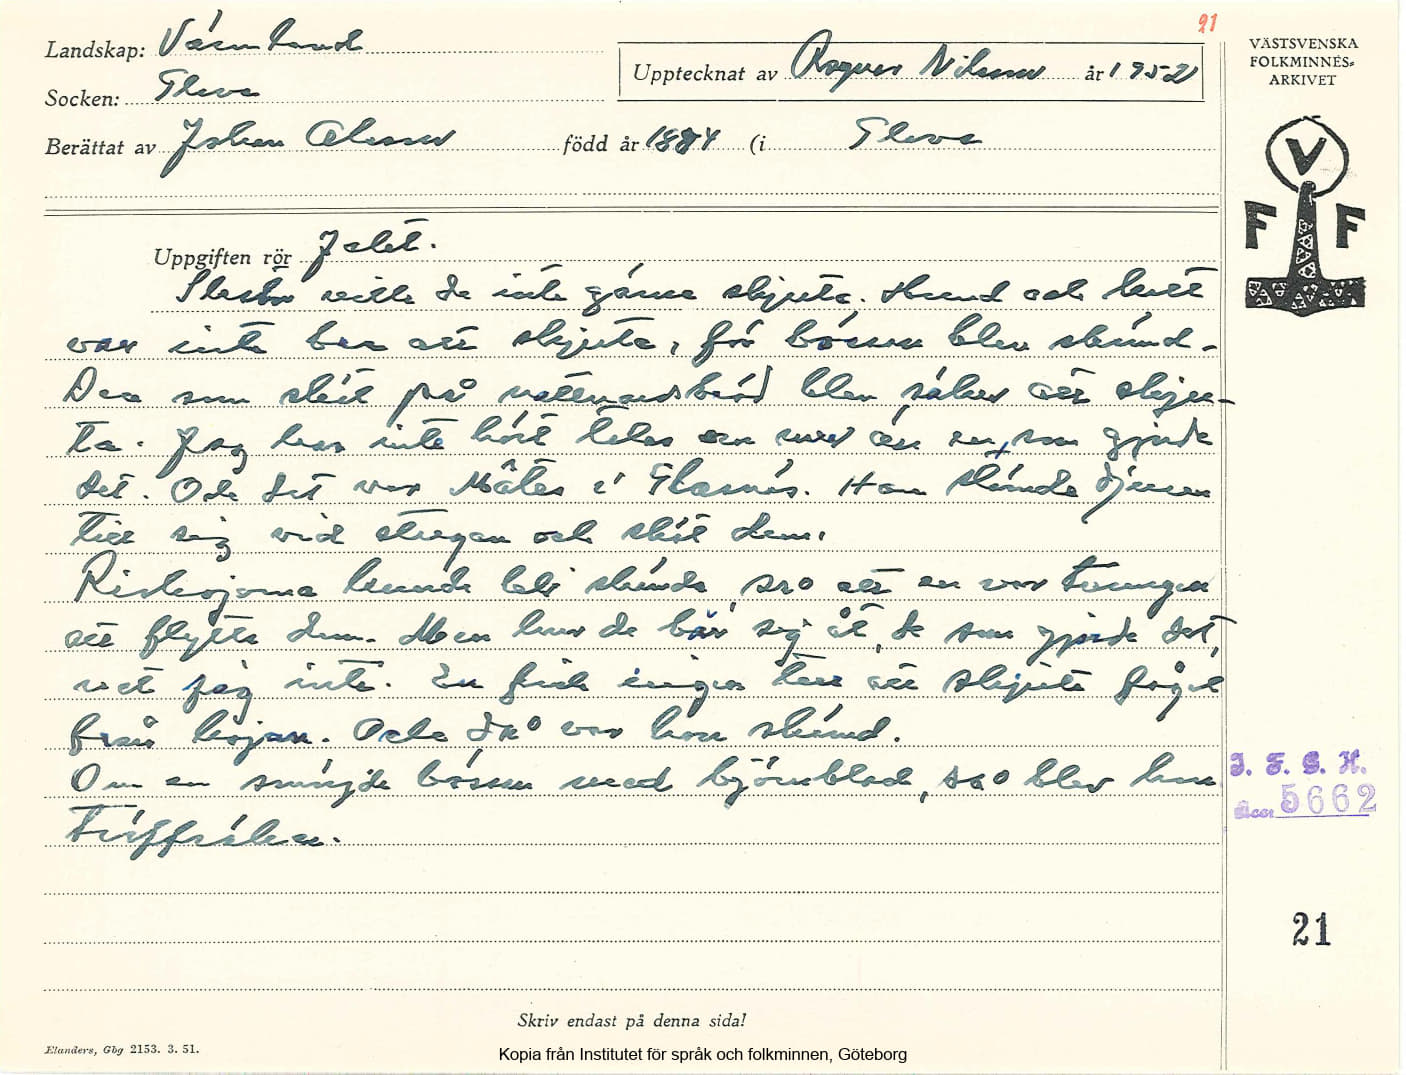 21
Landskap: Värmland
Upptecknat av Ragnar Nilsson år 1952
Socken: Gleva
Berättat av Johan Olsson född år 1884 (i Gleva
VÄSTSVENSKA
FOLKMINNES-
ARKIVET
V
F F
Uppgiften rör Jakt.
ville de inte gärna skjuta. Hund och katt
var inte bra att skjuta, för bössan blev skämd.
Den som sköt på nattvardsbröd blev säker att skju-
ta. Jag har inte hört talas om mer än en, som gjorde
det. Och det var Mâtes i Glasnäs. Han stämde djuren
till sig vid stugan och sköt dem.
Riskojorna kunde bli skämda, så att en var tvungen
att flytta dem. Men hur de bar sig åt, de som gjorde det,
vet jag inte. En fick ingen tur att skjuta fågel
från kojan. Och då var hon skämd.
Om en smörjde bössan med björnblod, så blev hon
träffsäker.
I. F. G. H.
Acc: 5662
21
Skriv endast på denna sida!
Elanders, Gbg 2153. 3. 51.
Kopia från Institutet för språk och folkminnen, Göteborg